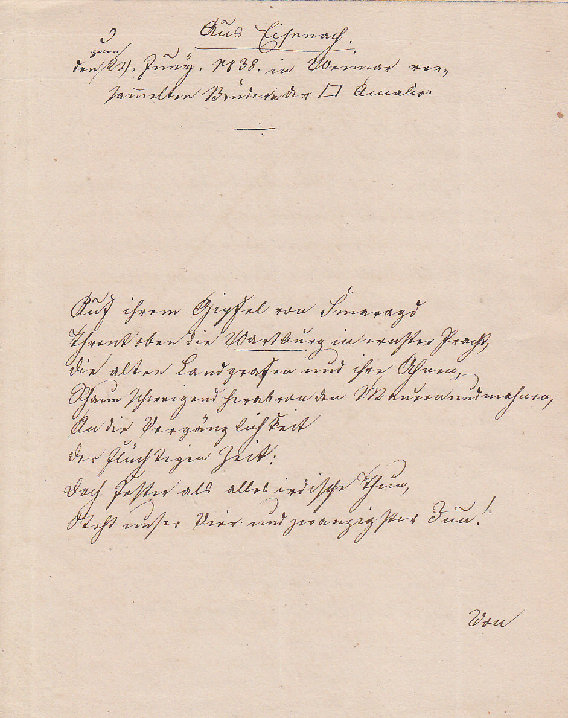 Aus Eisenach.
den 24. Juny. 1838. in Weimar ver-
sammelten Brüdern der □ Amalia
Auf ihrem Gipfel von Smaragd
Thront oben die Wartburg in ernster Pracht,
die alten Landgrafen und ihre Ahnen,
Schaun schweigend herab von den Mauern und mahnen,
An die Vergänglichkeit
der flüchtigen Zeit:
doch fester als alles irdische Thun,
Steht unser Vier und zwanzigster Jun!
Von